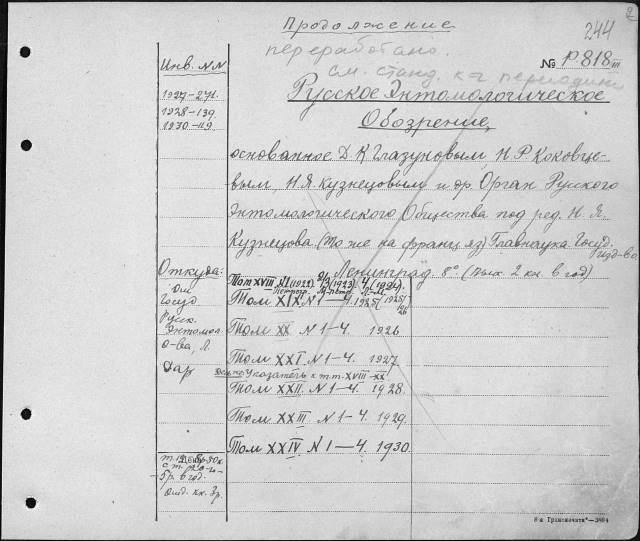 Продолжение
244
переработано.
см. станд. к-г периодики
№ Р.818 III
Инв. NN
1927-271.
1928-139.
1930-119.
Русское Энтомологическое
Обозрение,
основанное Д. К Глазуновым Н Р Коковце-
вым, Н. Я Кузнецовым и др. Орган Русского
Энтомологического Общества под ред. Н. Я.
Кузнецова (То же на франц. яз) Главнаука. Госуд.
Изд-ва
Ленинград. 8° (вых 2 кн в год)
Откуда:
От
Госуд
Русск.
Энтомол.
О-ва, Л.
Дар
Том XVIII N1 (1922) 2/3 (1923) 4 (1924).
Том XIX N 1—4. 1925
Том XX N 1—4. 1926
Том XXI N 1—4. 1927
Указатель к т.т. XVIII-XX
Том XXII N 1—4. 1928.
Том XXIII N 1—4. 1929.
Том XXIV N 1—4. 1930.
5 р. в год.
отд. кн. 3р.
8-я Гранспечать"—3894